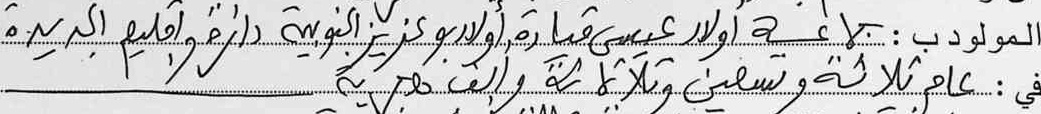 المولود ب: جماعة أولاد عيسى قيادة أولاد بوعزيز الجنوبية دائرة وإقليم الجديدة
في: عام ثلاثة وتسعين وثلاثمائة وألف هجرية